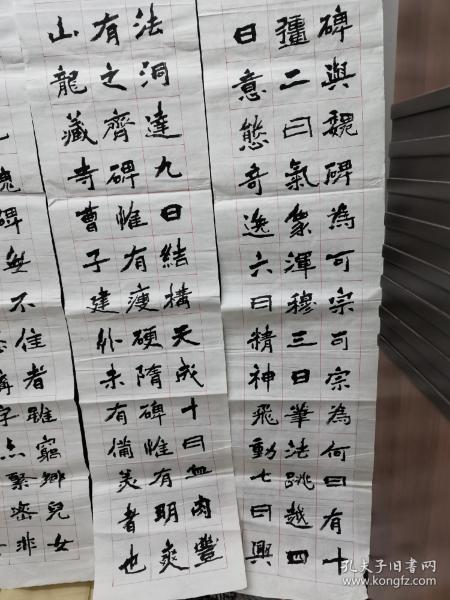 碑與魏碑為可宗可宗為何曰有十
彊二曰氣象渾穆三曰筆法跳越四
曰意態奇逸六曰精神飛動七曰興
法洞達九曰結構天成十曰血肉豐
有之齊碑惟有瘦硬隋碑惟有明爽
山龍藏寺曹子建外未有備美者也
魏碑無不佳者雖窮鄉兒女
字点緊密非
孔夫子旧书网